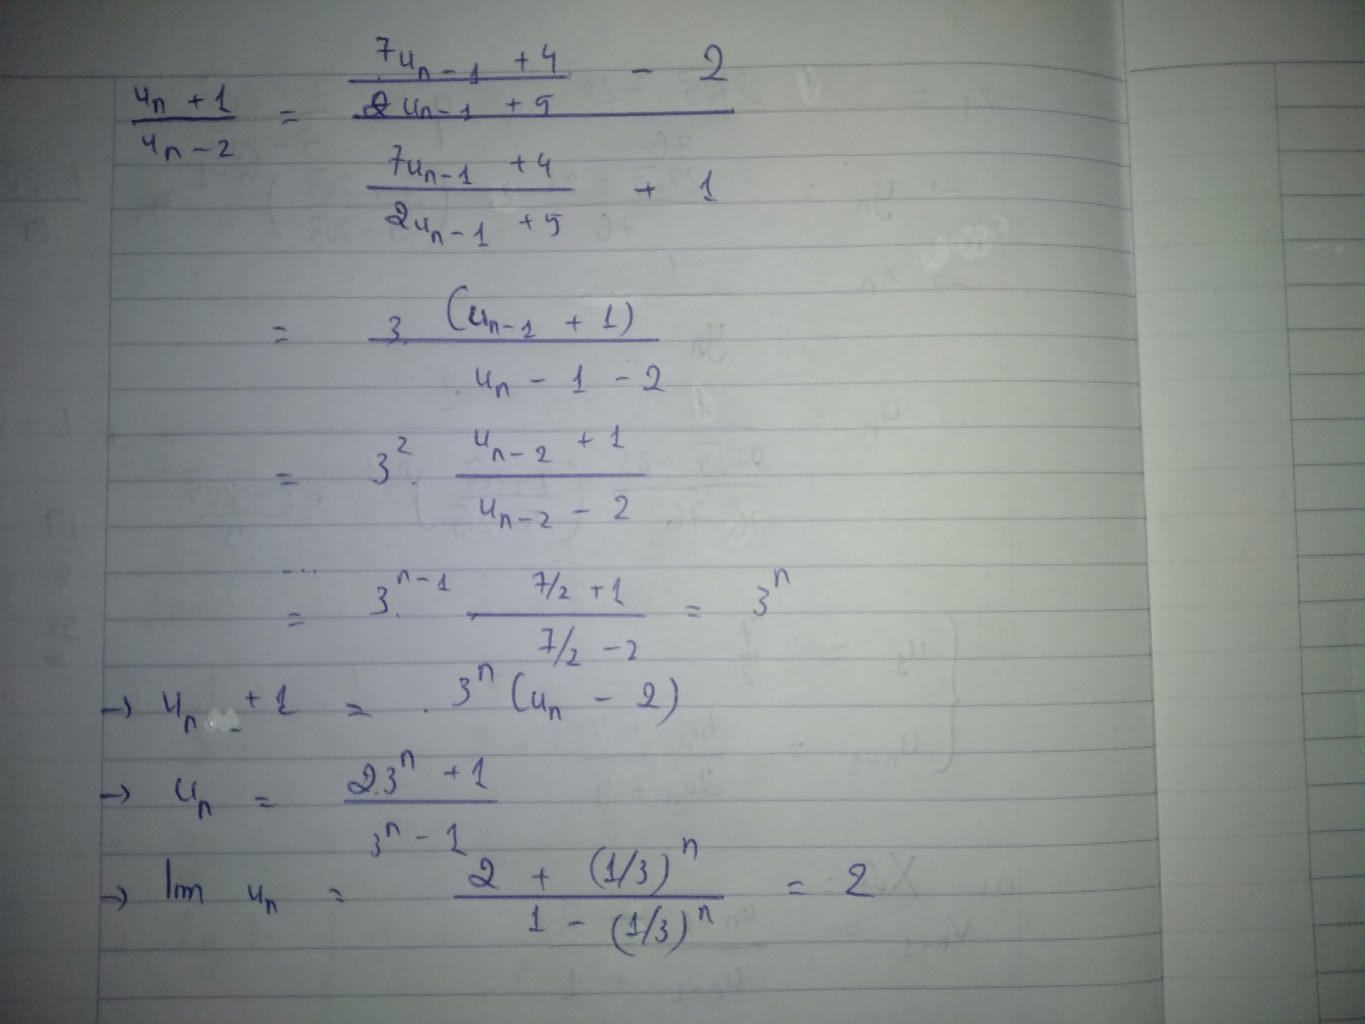 (u_n + 1)/(u_n - 2) = ((7u_{n-1} + 4)/(2u_{n-1} + 5) - 2)/((7u_{n-1} + 4)/(2u_{n-1} + 5) + 1)
= 3 (u_{n-1} + 1)/(u_n - 1 - 2)
= 3^2 . (u_{n-2} + 1)/(u_{n-2} - 2)
...
= 3^{n-1} . (7/2 + 1)/(7/2 - 2) = 3^n
→ u_n + 1 = 3^n (u_n - 2)
→ u_n = (2.3^n + 1)/(3^n - 1)
→ lim u_n = (2 + (1/3)^n)/(1 - (1/3)^n) = 2